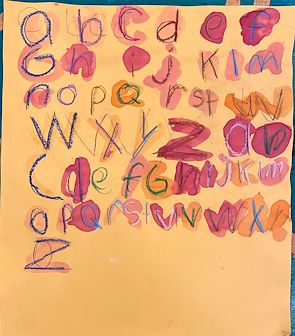 a b C d e f
G h i j K l m
n o p Q r s t u v
W X y Z a b
C d e f G h i j K l m
o p Q r s t u v W X n
Z